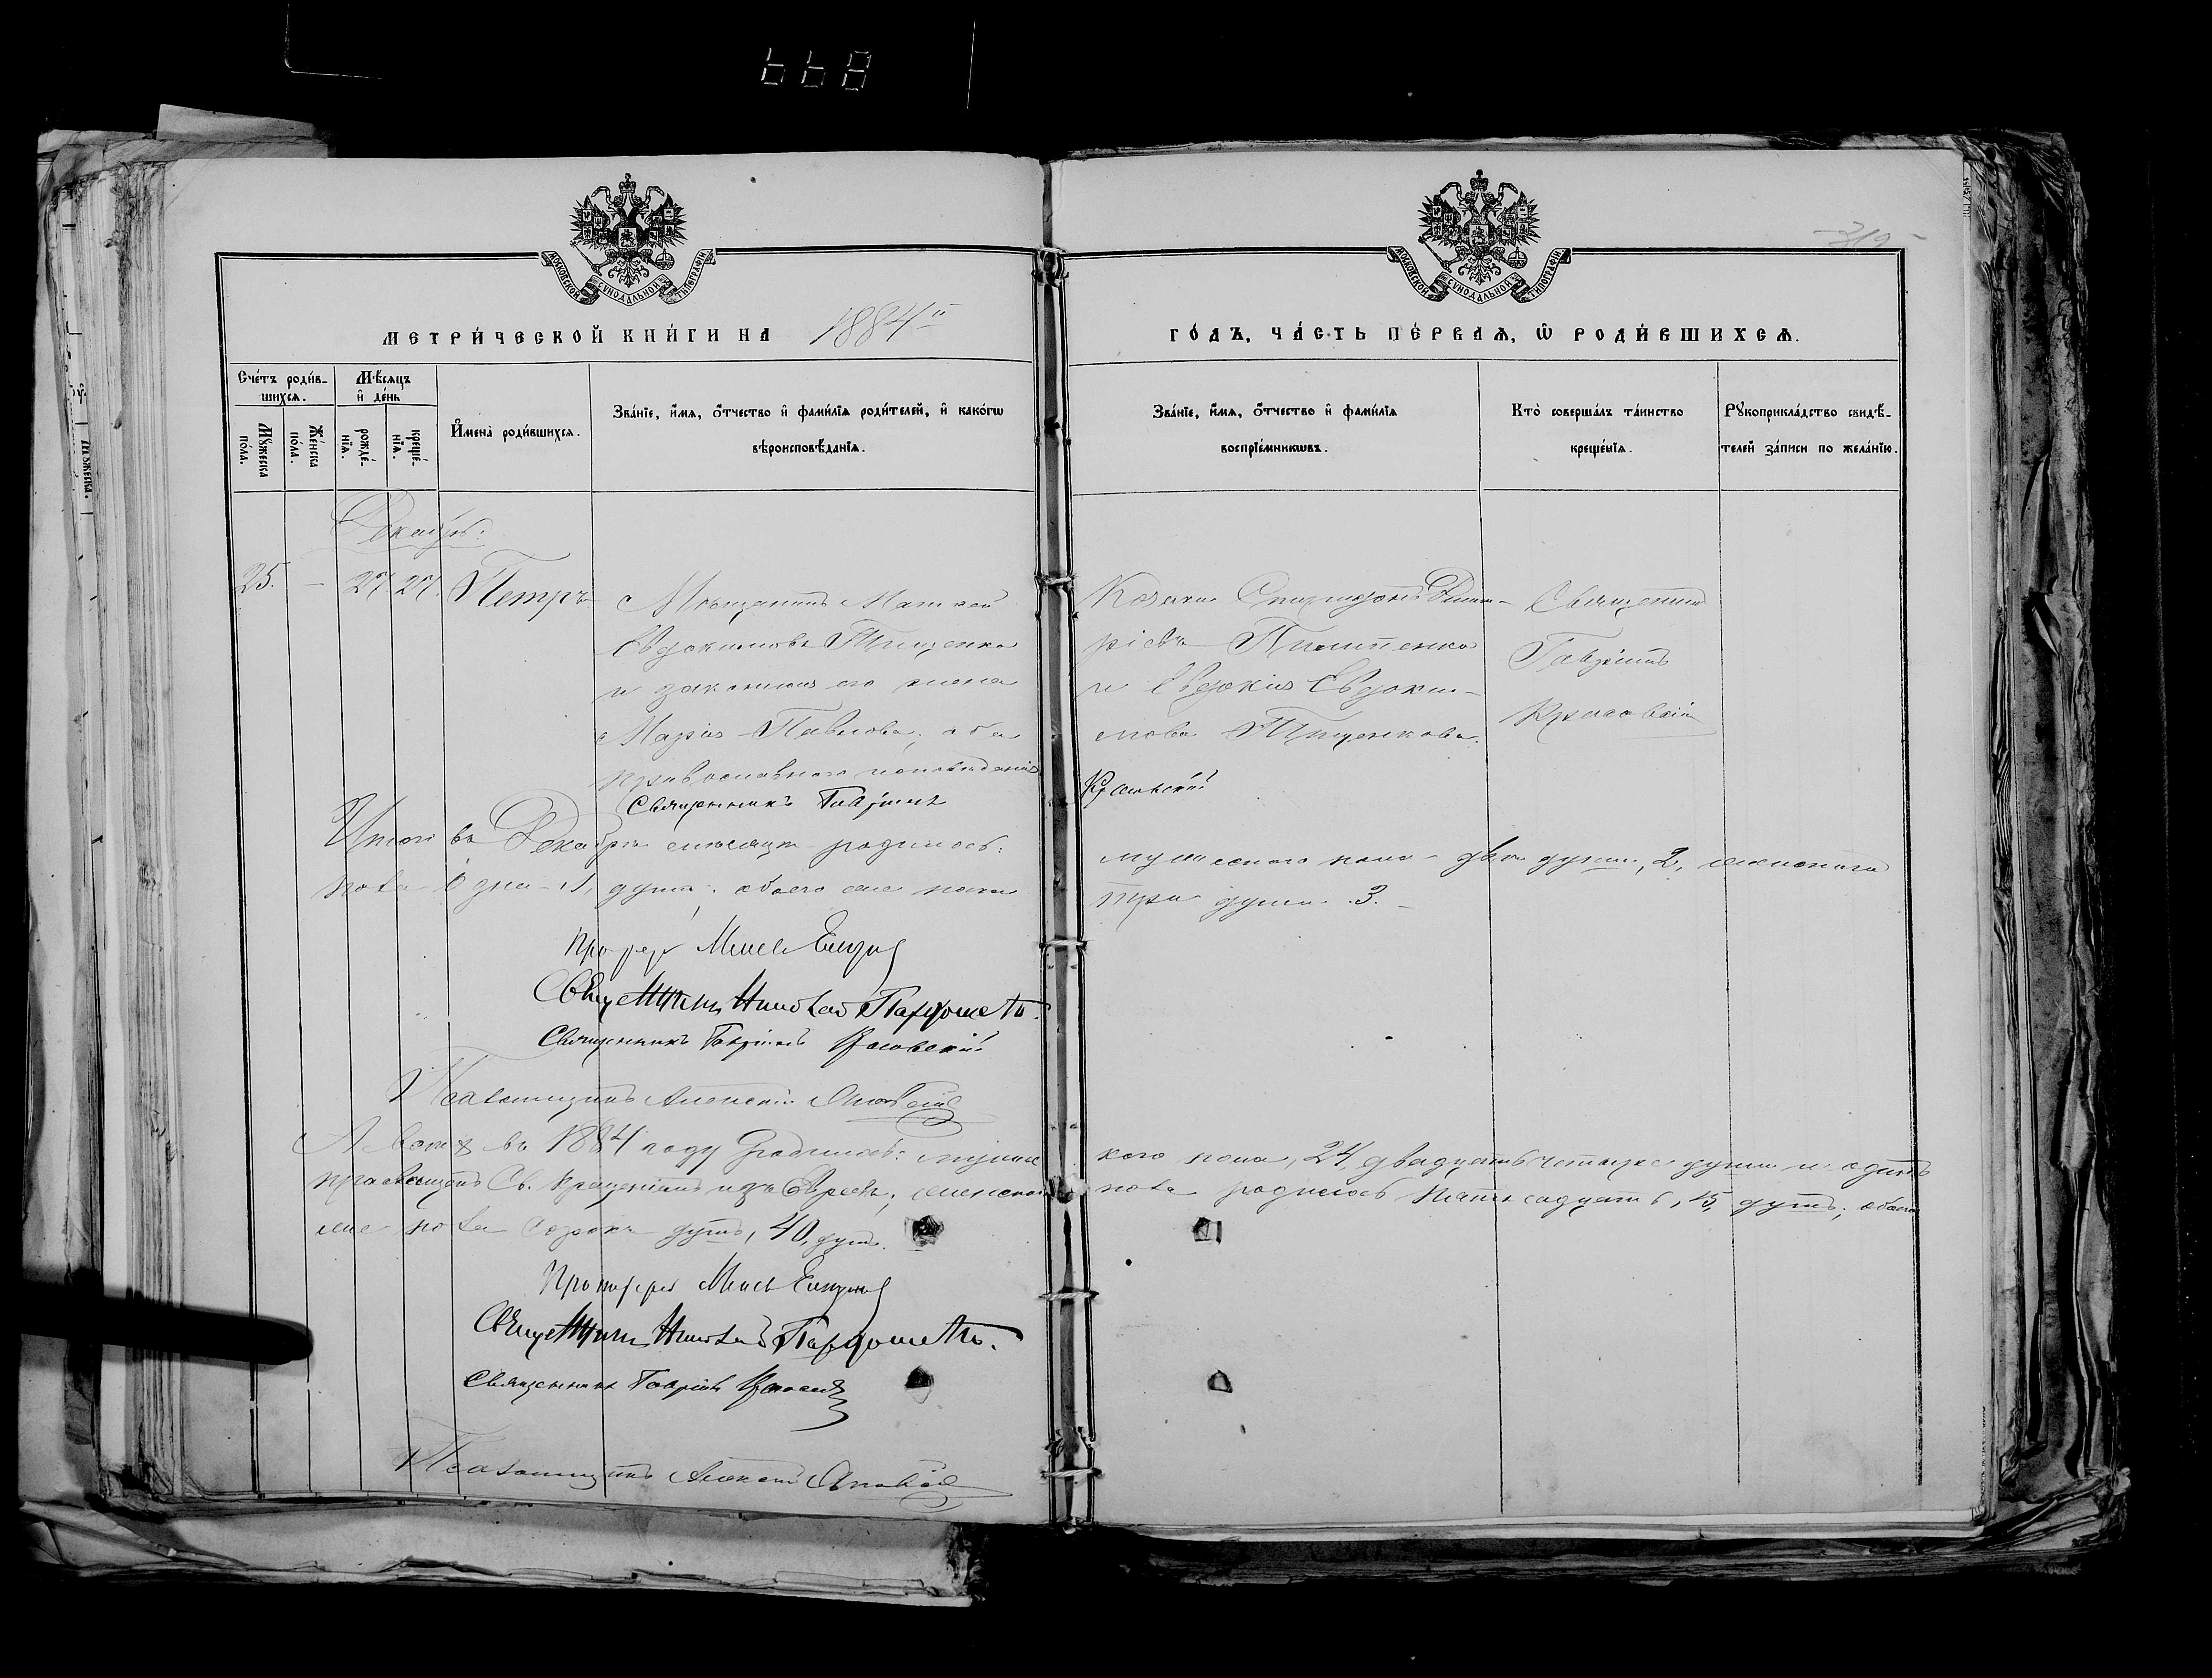 668
МОСКОВСКОЙ СУНОДАЛЬНОЙ ТИПОГРАФІИ
МОСКОВСКОЙ СУНОДАЛЬНОЙ ТИПОГРАФІИ
МЕТРИ́ЧЕСКОЙ КНИ́ГИ НА 1884й ГО́ДЪ, ЧА́СТЬ ПЕ́РВАѦ, Ѡ҆ РОДИ́ВШИХСѦ.
Сче́тъ роди́вшихсѧ.
Мꙋ́жеска по́ла.
Же́нска по́ла.
Мѣ́сѧцъ и҆ де́нь
рожде́нїѧ.
креще́нїѧ.
И҆мена̀ роди́вшихсѧ.
Зва́нїе, и҆́мѧ, о҆́тчество и҆ фами́лїѧ роди́телей, и҆ како́гѡ вѣроисповѣ́данїѧ.
Зва́нїе, и҆́мѧ, о҆́тчество и҆ фами́лїѧ воспрїе́мникѡвъ.
Кто̀ соверша́лъ та́инство креще́нїѧ.
Рꙋкоприкла́дство свидѣ́телей за́писи по жела́нїю.
Декабрь.
25. – 27 27. Петръ
Мѣщанинъ Матвей
Евдокимовъ Тищенко
и законная его жена
Марія Павлова, оба
православнаго исповѣданія
Козакъ Спиридонъ Димит-
ріевъ Пилипенко
и Евдокія Евдоки-
мова Тищенкова.
Священникъ
Гавріилъ
Красовскій
Священникъ Гавріилъ Красовскій
Итого въ Декабрѣ мѣсяцѣ родилось: мужескаго пола – двѣ души, 2, женскаго
пола одна – 1, душа; обоего же пола три души. 3. –
Священникъ Николай
Священникъ Гавріилъ Красовскій
Псаломщикъ Алексій
А всего въ 1884 году родилось: мужескаго пола, 24, двадцать четыре души и одинъ
просвѣщенъ Св. Крещеніемъ изъ Евреевъ, женскаго пола родилось пятнадцать, 15, душъ; обоего
же пола сорокъ душъ, 40, душъ.
Протоіерей
Священникъ Николай
Священникъ Гавріилъ Красовскій
Псаломщикъ Алексій